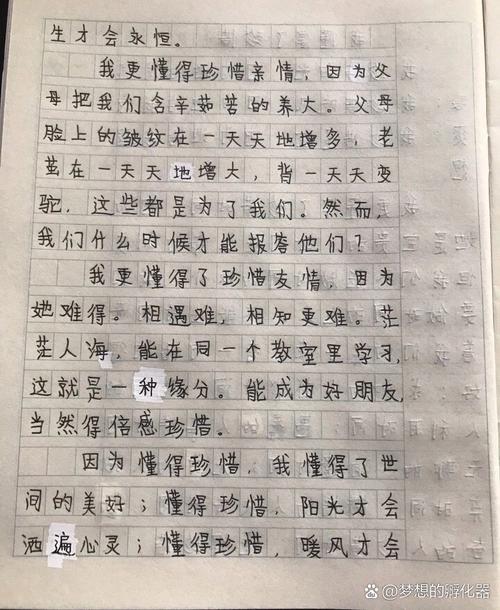 生才会永恒。
我更懂得珍惜亲情，因为父
母把我们含辛茹苦的养大。父母
脸上的皱纹在一天天地增多，老
茧在一天天地增大，背一天天变
驼，这些都是为了我们。然而，
我们什么时候才能报答他们？
我更懂得了珍惜友情，因为
她难得。相遇难，相知更难。茫
茫人海，能在同一个教室里学习，
这就是一种缘分。能成为好朋友，
当然得倍感珍惜。
因为懂得珍惜，我懂得了世
间的美好；懂得珍惜，阳光才会
洒遍心灵；懂得珍惜，暖风才会
@梦想的孵化器